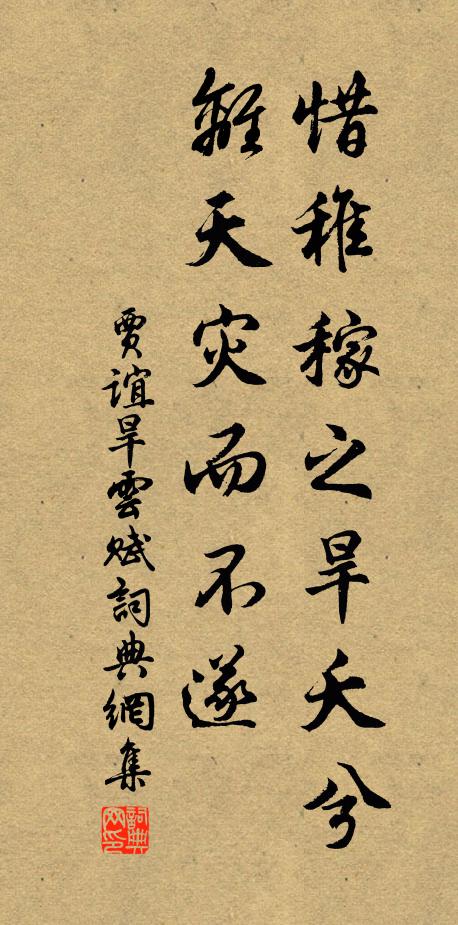 惜稚稼之旱夭兮
離天灾而不遂
賈誼旱雲賦詞典網集
詞典网印